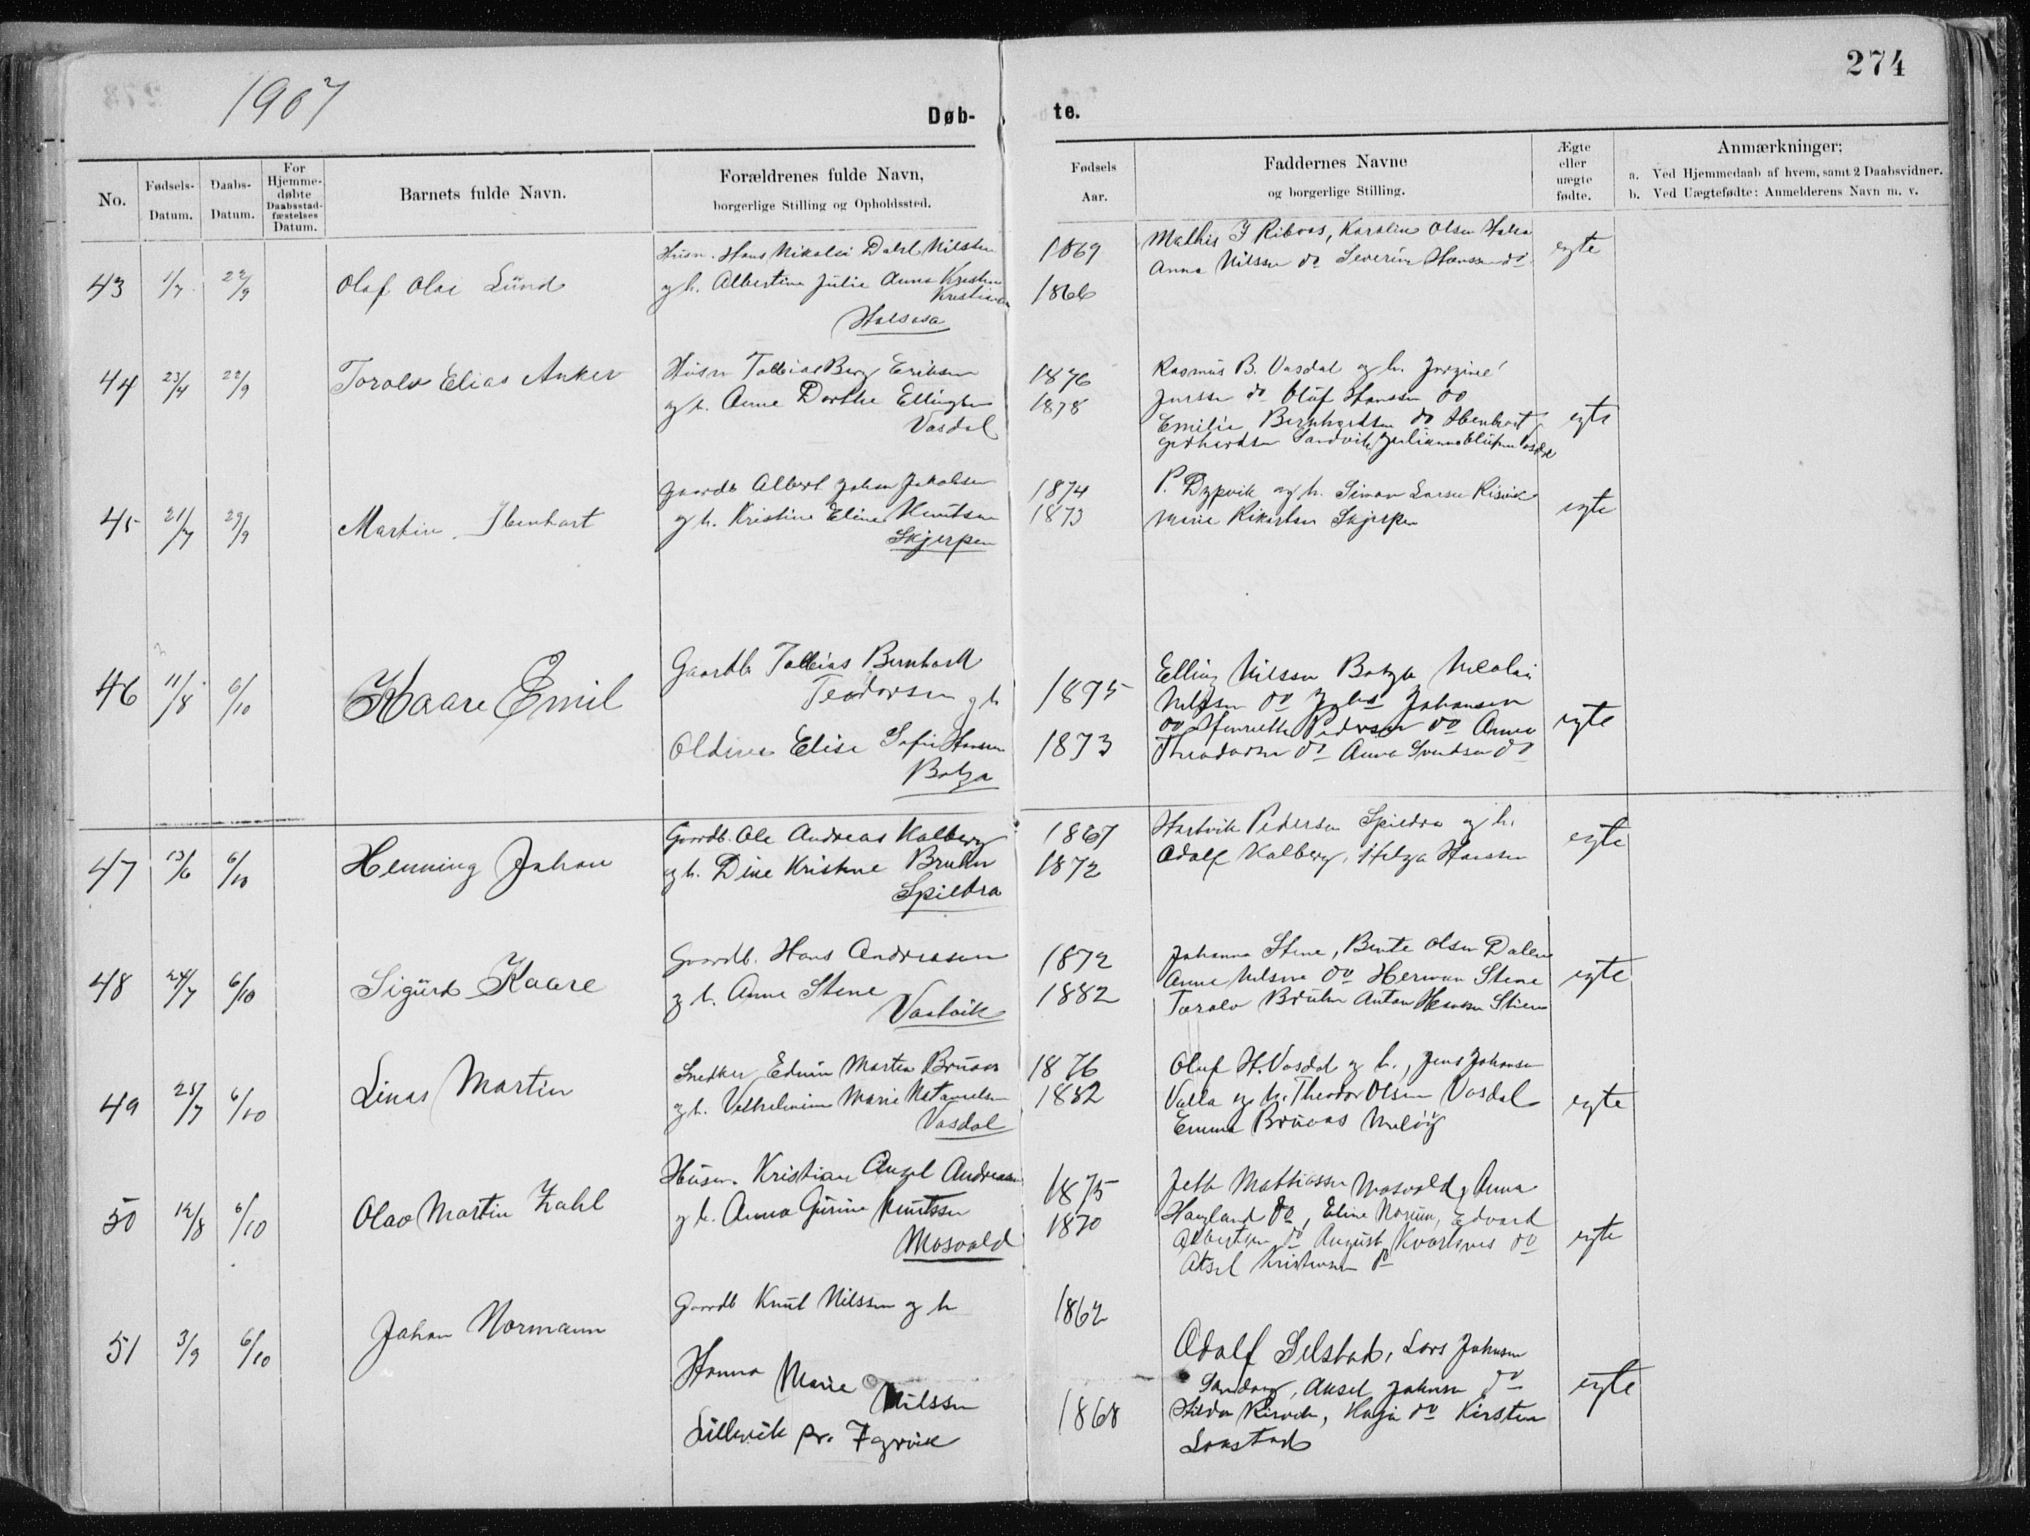 274
1907
Døb-
te.
No.
Fødsels-
Datum.
Daabs-
Datum.
For
Hjemme-
døbte
Daabsstad-
fæstelses
Datum.
Barnets fulde Navn.
Forældrenes fulde Navn,
borgerlige Stilling og Opholdssted.
Fødsels
Aar.
Faddernes Navne
og borgerlige Stilling.
Ægte
eller
uægte
fødte.
Anmærkninger:
a. Ved Hjemmedaab af hvem, samt 2 Daabsvidner.
b. Ved Uægtefødte: Anmelderens Navn m. v.
43 1/7 22/9 Olaf Olai Lund
Husm. Hans Nikolai Dahl Nilssen
og h. Albertine Julie Anna Kristine
Halsosa
1869
1866
Mathis J Riboas, Karoline Olsen
Anna Nilssen do Severine Hanssen do
egte
44 23/4 22/9 Torolv Elias Anker
Husm Tobias Berg Eriksen
og h. Anne Dorthe Ellingsen
Vasdal
1876
1878
Rasmus B. Vasdal og h. Jorgine
Jenssen do Oluf Hanssen do
Emilie Bernhardsen do Ibenhart
Gerhardsen Sandvik Julianna
egte
45 21/7 29/9 Martin Ibenhart
Gaardb Albert Johan Jakobsen
og h. Kristine Eline Knutsen
Skjerpen
1874
1873
P. Dypvik og h. Simon Larsen Risvik
Marie Rikartsen Skjerpen
egte
46 11/8 6/10 Kaare Emil
Gaardb Tobias Bernhard
Teodorsen og h
Oldine Elise Sofie Hansen
Bolga
1875
1873
Elling Nilssen Bolga Nicolai
Nilssen do Johansen
do Henriette Pedersen do Anna
Theodorsen do Anna Svendsen do
egte
47 13/6 6/10 Henning Johan
Gaardb. Ole Andreas Kalberg
og h. Dine Kristine Bruhn
Spildra
1867
1872
Hartvik Pedersen Spildra og h.
Adolf Kalberg, Helga Hanssen
egte
48 24/7 6/10 Sigurd Kaare
Gaardb. Hans Andreasen
og h. Anne Stene
Vastvik
1872
1882
Johanna Stene, Bente Olsen Dalen
Anne Nilsine do Herman Stene
Torolv Bruhn Anton Stene
egte
49 25/7 6/10 Linas Martin
Snedker Edvin Martin Bruaas
og h. Vilhelmine Marie Natanelsen
Vasdal
1876
1882
Oluf H. Vasdal og h., Jens Johansen
Valla og h. Theodor Olsen Vasdal
Emma Bruaas Meløy
egte
50 12/8 6/10 Olav Martin Zahl
Husm. Kristian Aksel Andreassen
og h. Anna Gurine Knutssen
Mosvold
1875
1870
Jeth Mathiassen Mosvold, Anna
Haugland do, Eline Norum, Edvard
Albertsen do August Kvarsnes do
Aksel Kristensen do
egte
51 3/9 6/10 Johan Normann
Gaardb Knut Nilssen og h
Hanna Marie Nilssen
Lillevik pr.
1862
1868
Adolf Selstad, Lars Johnsen
Sandvaag, Aksel Johnsen do
Hilda, Kaja do Kirsten
Laastad
egte